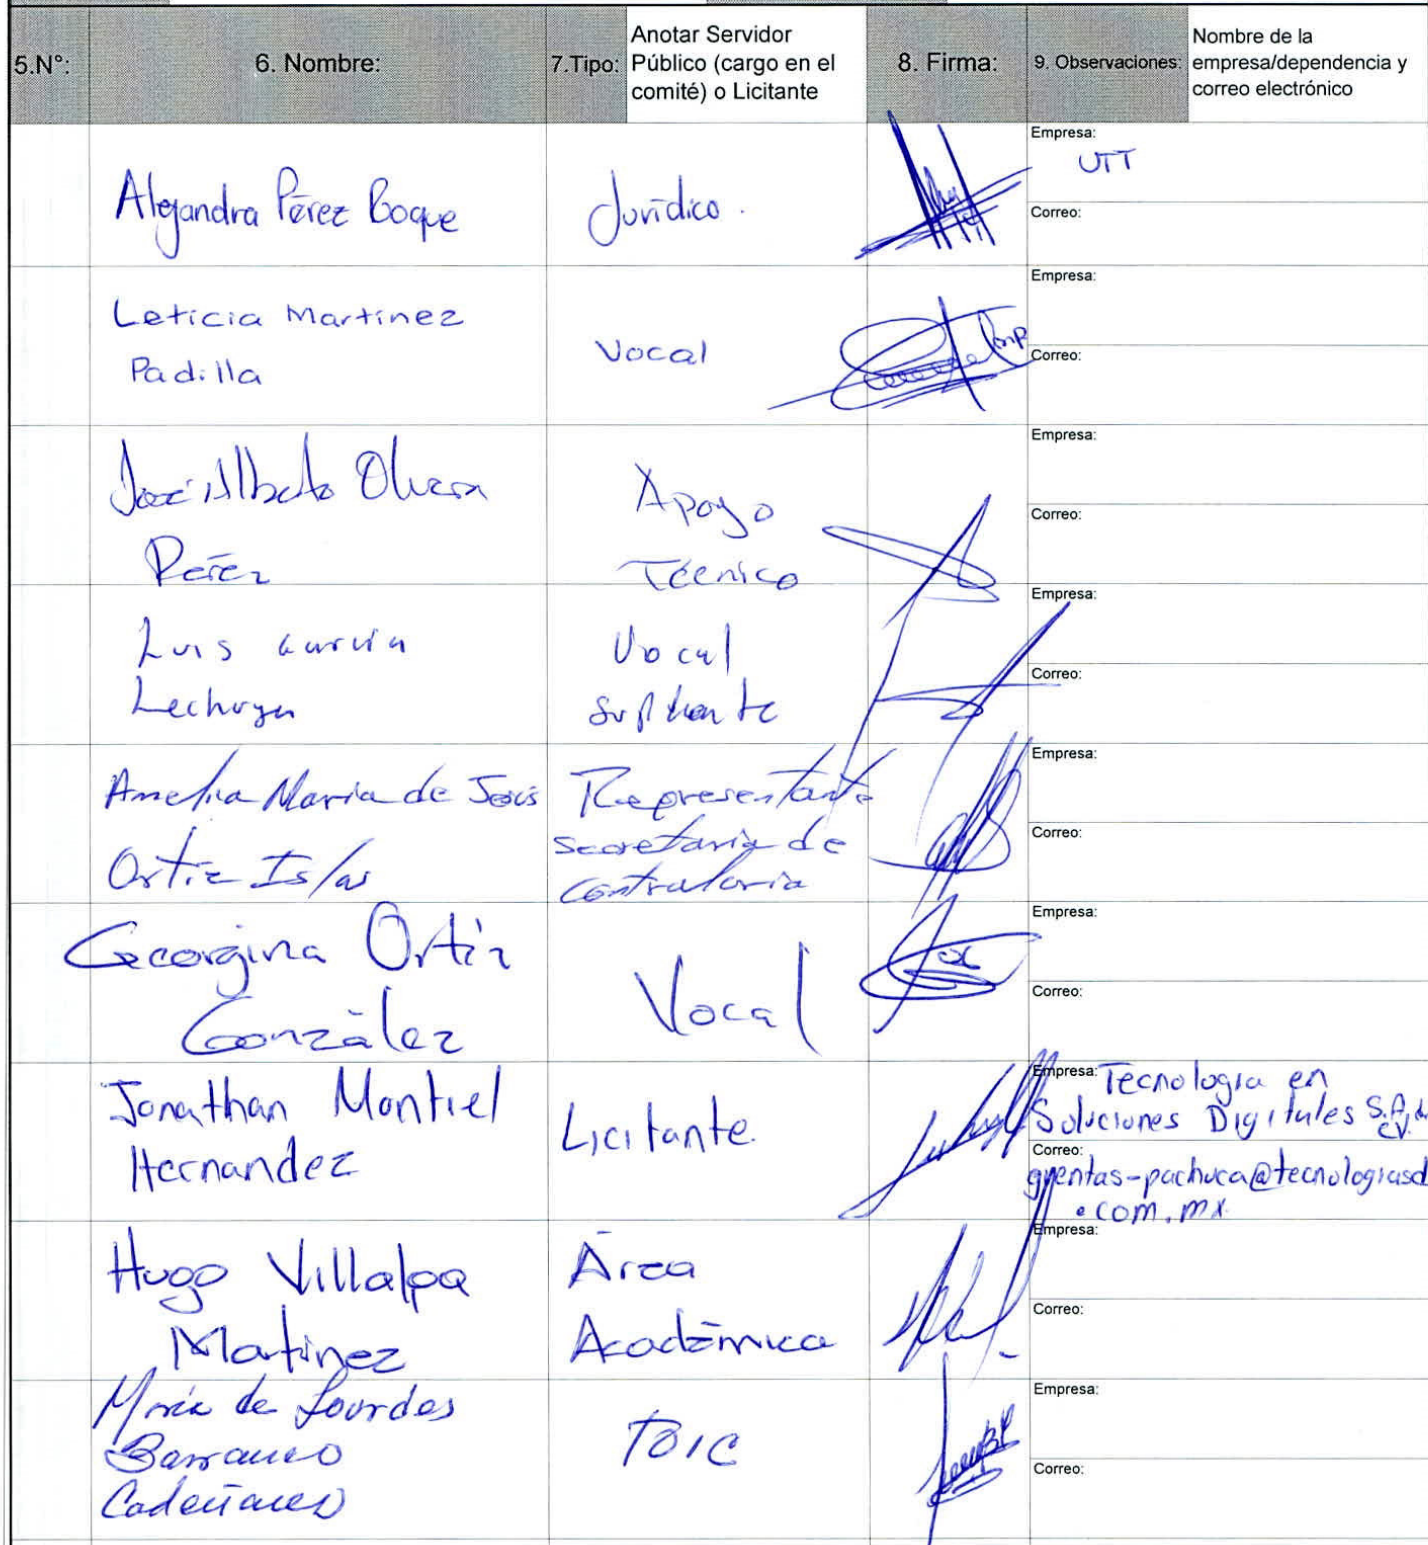 5.N°:
6. Nombre:
7.Tipo:
Anotar Servidor
Público (cargo en el
comité) o Licitante
8. Firma:
9. Observaciones:
Nombre de la
empresa/dependencia y
correo electrónico
Alejandra Pérez Boque
Jurídico.
Empresa:
UTT
Correo:
Leticia Martinez
Padilla
Vocal
Empresa:
Correo:
José Alberto Olvera
Pérez
Apoyo
Técnico
Empresa:
Correo:
Luis García
Lechuga
Vocal
Suplente
Empresa:
Correo:
Amelia Maria de Jesús
Ortiz Islas
Representante
Secretaría de
Contraloría
Empresa:
Correo:
Georgina Ortíz
González
Vocal
Empresa:
Correo:
Jonathan Montiel
Hernandez
Licitante
Empresa: Tecnologia en
Soluciones Digitales S.A. de
C.V.
Correo:
gventas-pachuca@tecnologiasd
.com.mx
Hugo Villalpa
Martínez
Área
Académica
Empresa:
Correo:
María de Lourdes
Barranco
TOIC
Empresa:
Correo: